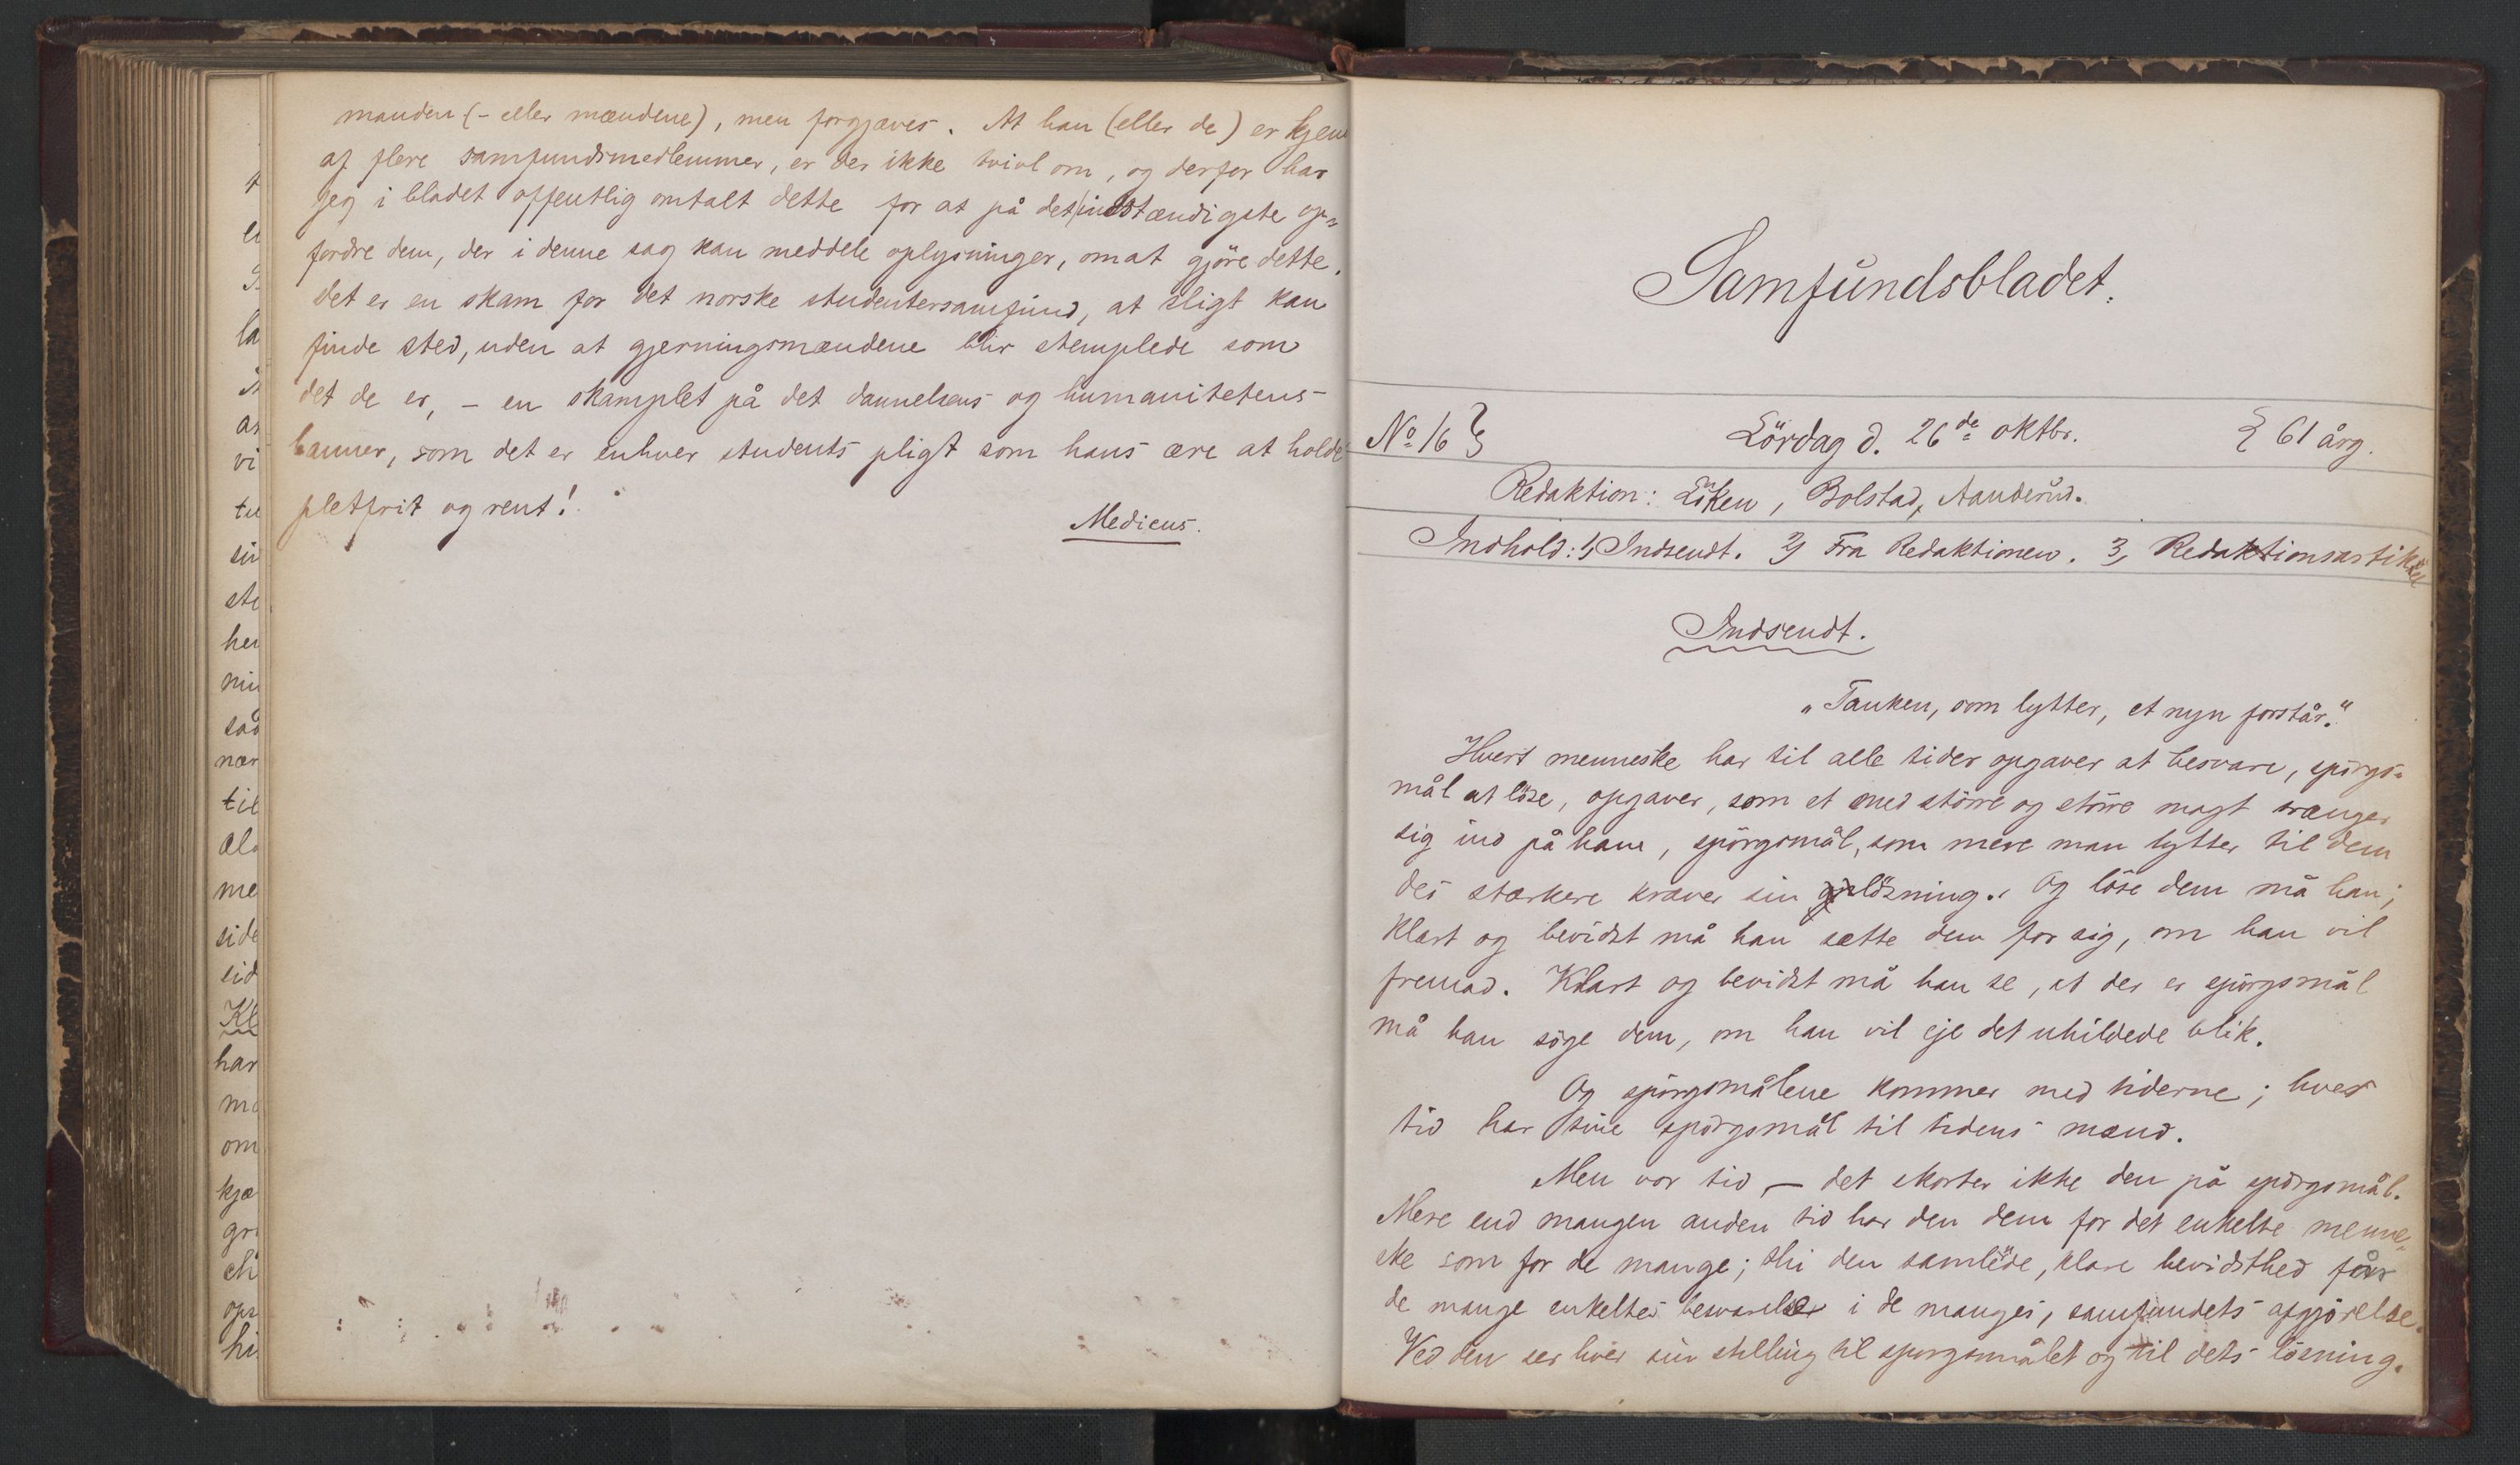 manden (- eller mændene), men forgjæves. At han (eller de) er kjen
af flere samfundsmedlemmer, er der ikke tvivl om, og derfor har
jeg i bladet offentlig omtalt dette for at på det indstændigste op=
fordre dem, der i denne sag kan meddele oplysninger, om at gjöre dette.
det er en skam for det norske studentersamfund, at sligt kan
finde sted, uden at gjerningsmændene blir stemplede som
det de er, - en skamplet på det dannelsens og humanitetens
banner, som det er enhver students pligt som hans ære at holde
pletfrit og rent!
Medicus.
Samfundsbladet.
No 16 Lördag d. 26de oktbr. 61 årg.
Redaktion: Löken, Bolstad, Aanderud.
Indhold: 1, Indsendt. 2, Fra Redaktionen. 3, Redaktionsartikel
Indsendt.
„Tanken, som lytter, et nyn forstår."
Hvert menneske har til alle tider opgaver at besvare, spörgs=
mål at löse, opgaver, som et med större og större magt trænger
sig ind på ham, spörgsmål, som mere man lytter til dem
des stærkere kræver sin lösning. Og löse dem må han;
klart og bevidst må han sætte dem for sig, om han vil
fremad. Klart og bevidst må han se, at der er spörgsmål
må han söge dem, om han vil eje det uhildede blik.
Og spörgsmålene kommer med tiderne; hver
tid har sine spörgsmål til tidens mænd.
Men vor tid, — det skorter ikke den på spörgsmål.
Mere end mangen anden tid har den dem for det enkelte menne=
ske som for de mange; thi den samlede, klare bevidsthed får
de mange enkeltes besvarelser i de manges, samfundets afgjörelse.
Ved den ser hver sin stilling til spörgsmålet og til dets lösning.